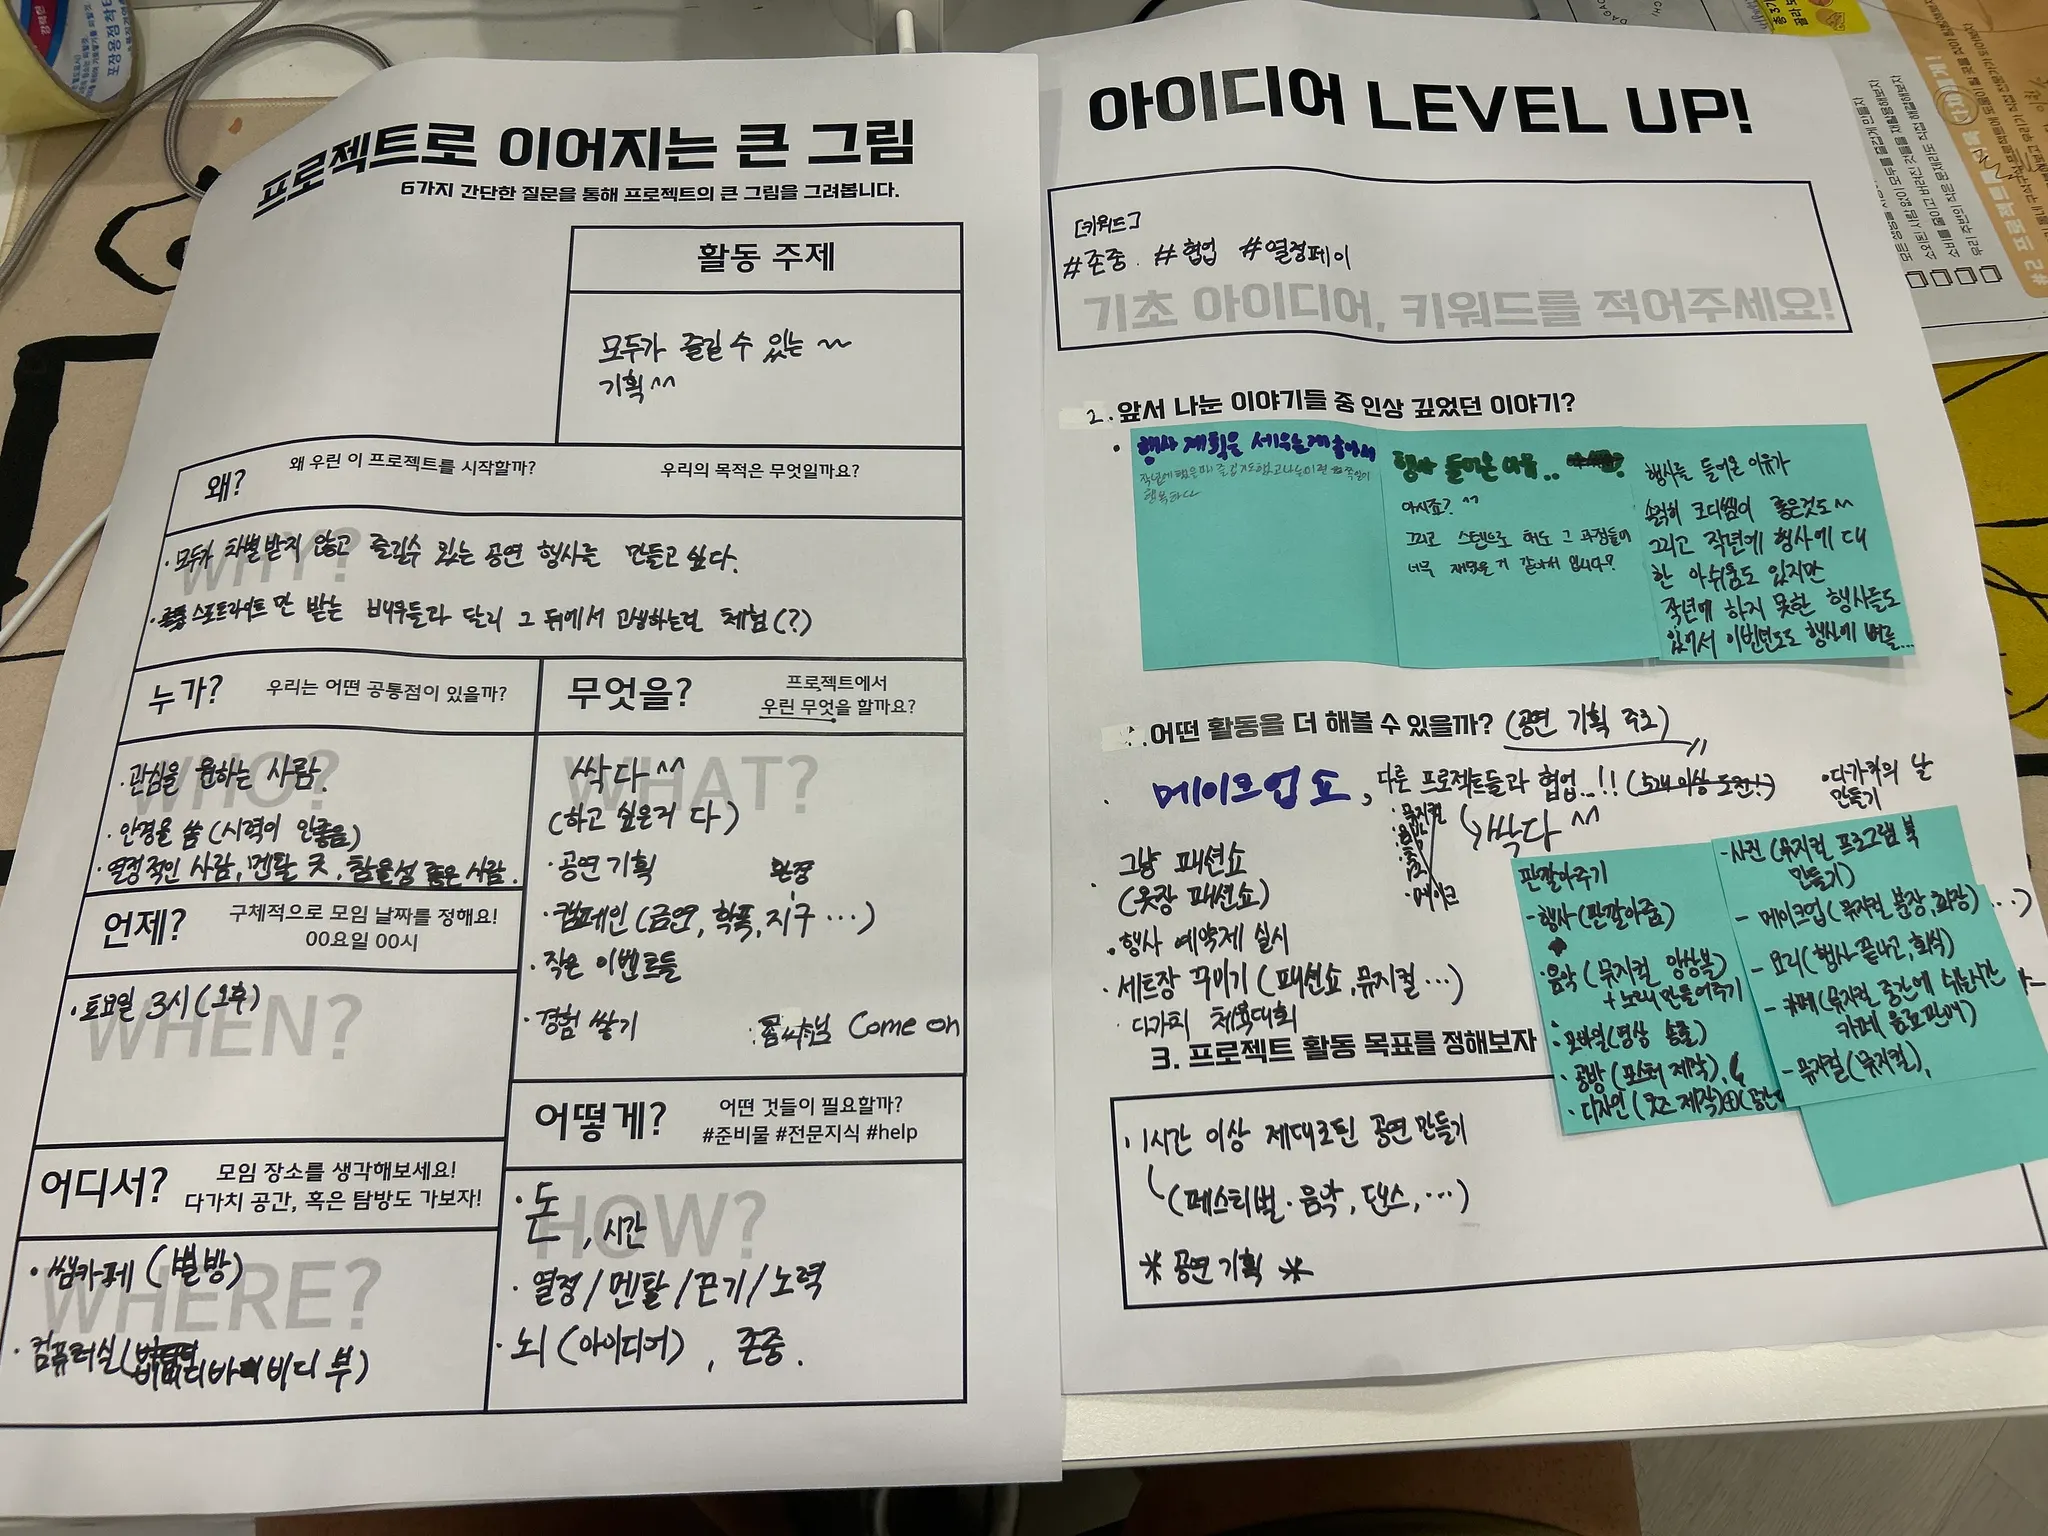 프로젝트로 이어지는 큰 그림
6가지 간단한 질문을 통해 프로젝트의 큰 그림을 그려봅니다.
활동 주제
모두가 즐길 수 있는 ~~
기획^^
왜?
왜 우린 이 프로젝트를 시작할까?
우리의 목적은 무엇일까요?
WHY?
· 모두가 차별받지 않고 즐길수 있는 공연 행사를 만들고 싶다.
· 스포트라이트만 받는 배우들과 달리 그 뒤에서 고생하는걸 체험(?)
누가?
우리는 어떤 공통점이 있을까?
WHO?
· 관심을 원하는 사람.
· 안경을 씀 (시력이 안좋음)
· 열정적인 사람, 멘탈 굿, 참을성 좋은 사람.
무엇을?
프로젝트에서
우린 무엇을 할까요?
WHAT?
싹 다^^
(하고 싶은거 다)
· 공연 기획
환경
· 캠페인 (금연, 학폭, 지구 ···)
· 작은 이벤트들
· 경험 쌓기
Come on
언제?
구체적으로 모임 날짜를 정해요!
00요일 00시
WHEN?
· 토요일 3시 (오후)
어디서?
모임 장소를 생각해보세요!
다가치 공간, 혹은 탐방도 가보자!
WHERE?
· 쌤카페 (별방)
· 컴퓨터실
어떻게?
어떤 것들이 필요할까?
#준비물 #전문지식 #help
HOW?
· 돈, 시간
· 열정/멘탈/끈기/노력
· 뇌 (아이디어), 존중.
아이디어 LEVEL UP!
[키워드]
#존중. #협업 #열정페이
기초 아이디어, 키워드를 적어주세요!
2. 앞서 나눈 이야기들 중 인상 깊었던 이야기?
행사 계획을 세우는게 좋아서
행복하다
행사 들어온 이유..
아시죠? ^^
그리고 스텝으로 해도 그 과정들이
너무 재밌을거 같아서 입니다?
행사를 들어온 이유가
솔직히 코디쌤이 좋은것도^^
그리고 작년에 행사에 대
한 아쉬움도 있지만
작년에 하지 못한 행사들도
있어서 이번년도도 행사에 버를...
어떤 활동을 더 해볼 수 있을까? (공연 기획 주로)
· 메이크업 쇼, 다른 프로젝트들과 협업...!! (5개 이상 도전!)
· 다가치의 날
만들기
· 뮤지컬
· 메이크
싹다^^
· 그냥 패션쇼
(옷장 패션쇼)
· 행사 예약제 실시
· 세트장 꾸미기 (패션쇼, 뮤지컬 ···)
· 다가치 체육대회
판깔아주기
- 행사 (판깔아줌)
· 음악 (뮤지컬 앙상블)
+ 노래 만들어주기
· 모바일 (영상 송출)
· 공방 (포스터 제작),
· 디자인 (굿즈 제작)
- 사진 (뮤지컬 프로그램 북
만들기)
- 메이크업 (뮤지컬 분장, 화장)
- 요리 (행사 끝나고, 회식)
- 카페 (뮤지컬 중간에 쉬는시간
카페 음료판매)
- 뮤지컬 (뮤지컬),
3. 프로젝트 활동 목표를 정해보자
· 1시간 이상 제대로된 공연 만들기
(페스티벌·음악, 댄스, ···)
* 공연 기획 *